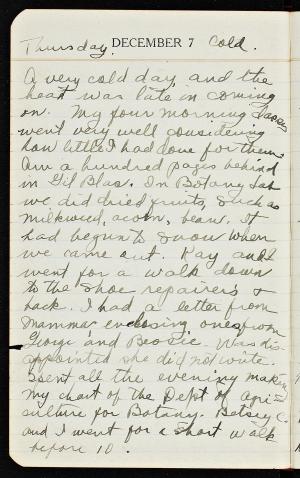 Thursday. DECEMBER 7 Cold.
A very cold day, and the
heat was late in coming
on. My four morning classes
went very well considering
how little I had done for them
Am a hundred pages behind
in Gil Blas. In Botany Lab
we did dried fruits, such as
milkweed, acorn, bean. It
had begun to snow when
we came out. Kay and I
went for a walk down
to the shoe repairers &
back. I had a letter from
Mamma enclosing ones from
Georgi and Bessie. Was dis-
appointed she did not write.
Spent all the evening making
my chart of the Dept of Agri-
culture for Botany. Betsey C.
and I went for a short walk
before 10.